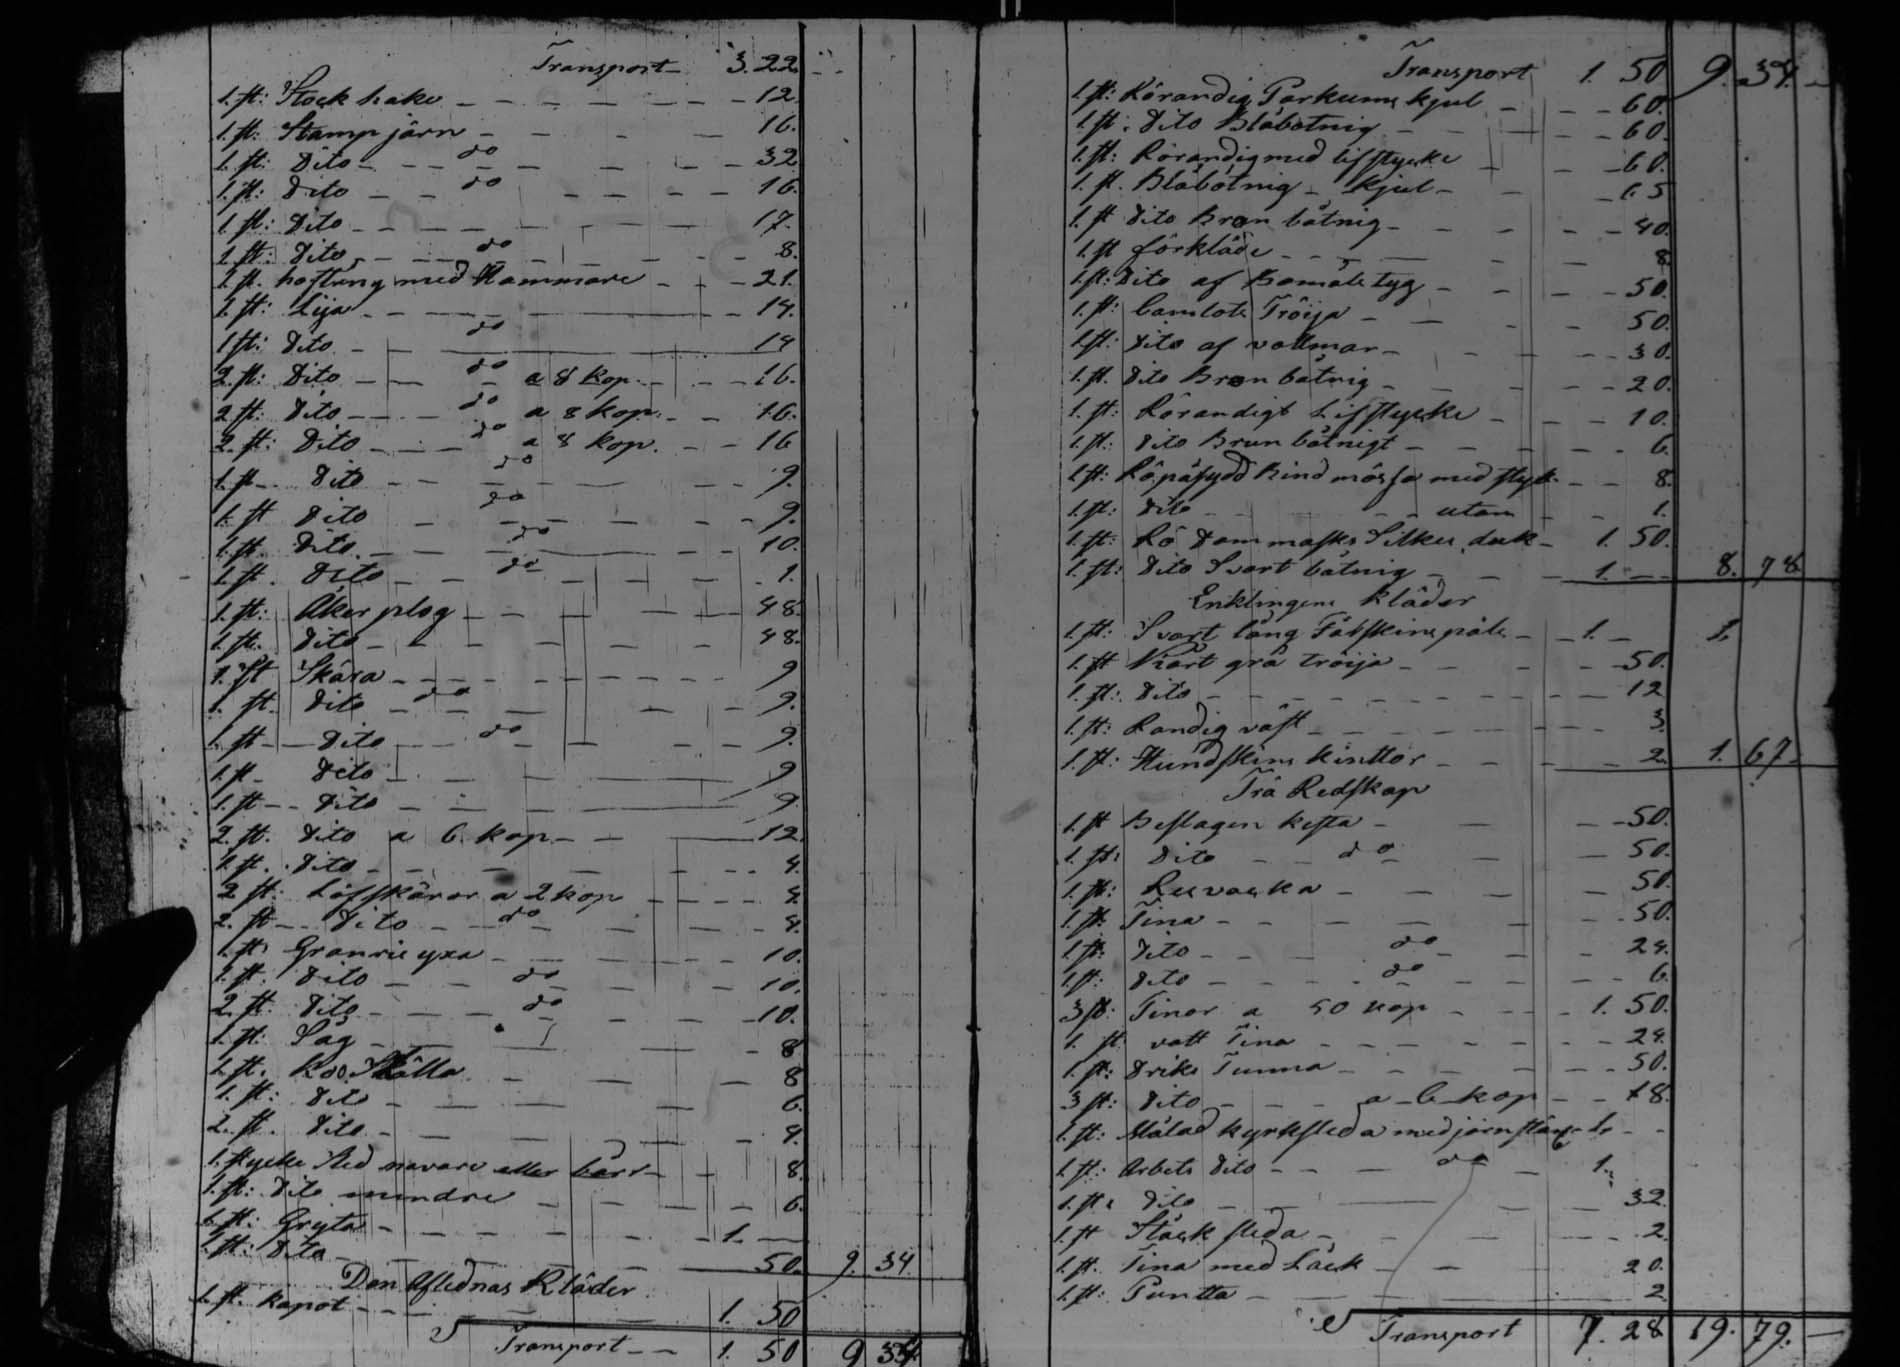 Transport 3. 22
1. st: Stock hake 12
1. st: Stamp järn 16.
1. st: Dito do 32
1. st: Dito do 16.
1. st: Dito 17.
1. st: Dito do 8.
1. st. hoftång med Hammare 21.
1. st: Lija 14.
1 st: Dito do 14
2. st: Dito do a 8 kop. 16.
2 st: Dito do a 8 kop. 16.
2. st: Dito do a 8 kop. 16
1. st Dito do 9.
1. st Dito do 9.
1. st. Dito do 10.
1. st. Dito do 1.
1. st: Åker plog 48.
1. st: Dito 48.
1. st Skära 9
1. st. Dito do 9.
1. st Dito do 9.
1. st Dito 9
1. st Dito 9.
2. st. Dito a 6 kop 12
1. st. Dito 4.
2 st: Löfskäror a 2 kop 4
2. st Dito do 4.
1. st: Granris yxa 10.
1. st: Dito do 10.
2. st: Dito do 10.
1. st: Såg 8
1. st. Koo Skälla 8
1. st: Dito 6.
2. st. Dito 4.
1. stycke Sled navare eller bårr 8.
1. st: Dito mindre 6.
1. st: Gryta 1.
1. st: Dito 50. 9. 34.
Den Aflednas Kläder
1. st. kapot 1. 50
Transport 1. 50 9 34.
Transport 1. 50 9. 34.
1. st: Rörandig Parkums kjul 60.
1. st. Dito Blåbotnig 60.
1. st: Rörandig med lifstycke 60.
1. st. Blåbotnig kjul 65
1. st Dito Brun båtnig 40.
1. st förkläde 8.
1. st: Dito af Bomåls tyg 50.
1. st: Camlots Tröija 50.
1. st: Dito af vallmar 30.
1. st. Dito Brun båtnig 20.
1. st: Rörandigt Lifstycke 10.
1. st: Dito Brun båtnigt 6.
1. st: Röpåsydd Bind mössa med stycke 8.
1. st: Dito utan 1.
1. st: Rö Dammasks Silkes duk 1. 50.
1. st: Dito Svart båtnig 1. 8. 78
Enklingens Kläder
1. st: Svart lång Fårskins päls 1. 1.
1. st Kiort grå tröija 50.
1. st: Dito 12
1. st: Randig väst 3.
1. st: Hundskins kinttor 2. 1. 67.
Trä Redskap
1. st Beslagen kista 50.
1. st: Dito do 50.
1. st: Resvaska 50.
1. st: Tina 50.
1. st: Dito do 24.
1. st: Dito do 6.
3 st: Tinor a 50 kop 1. 50.
1. st: vatt Tina 24.
1. st: Driks Tunna 50.
3 st: Dito a 6 kop 18.
1. st: Målad kyrksleda med järn stång 1.
1. st: Arbets Dito do 1.
1. st: Dito 32
1. st Stäck sleda 2.
1. st. Tina med Låck 20.
1. st: Puntta 2
Transport 7. 28 19. 79.